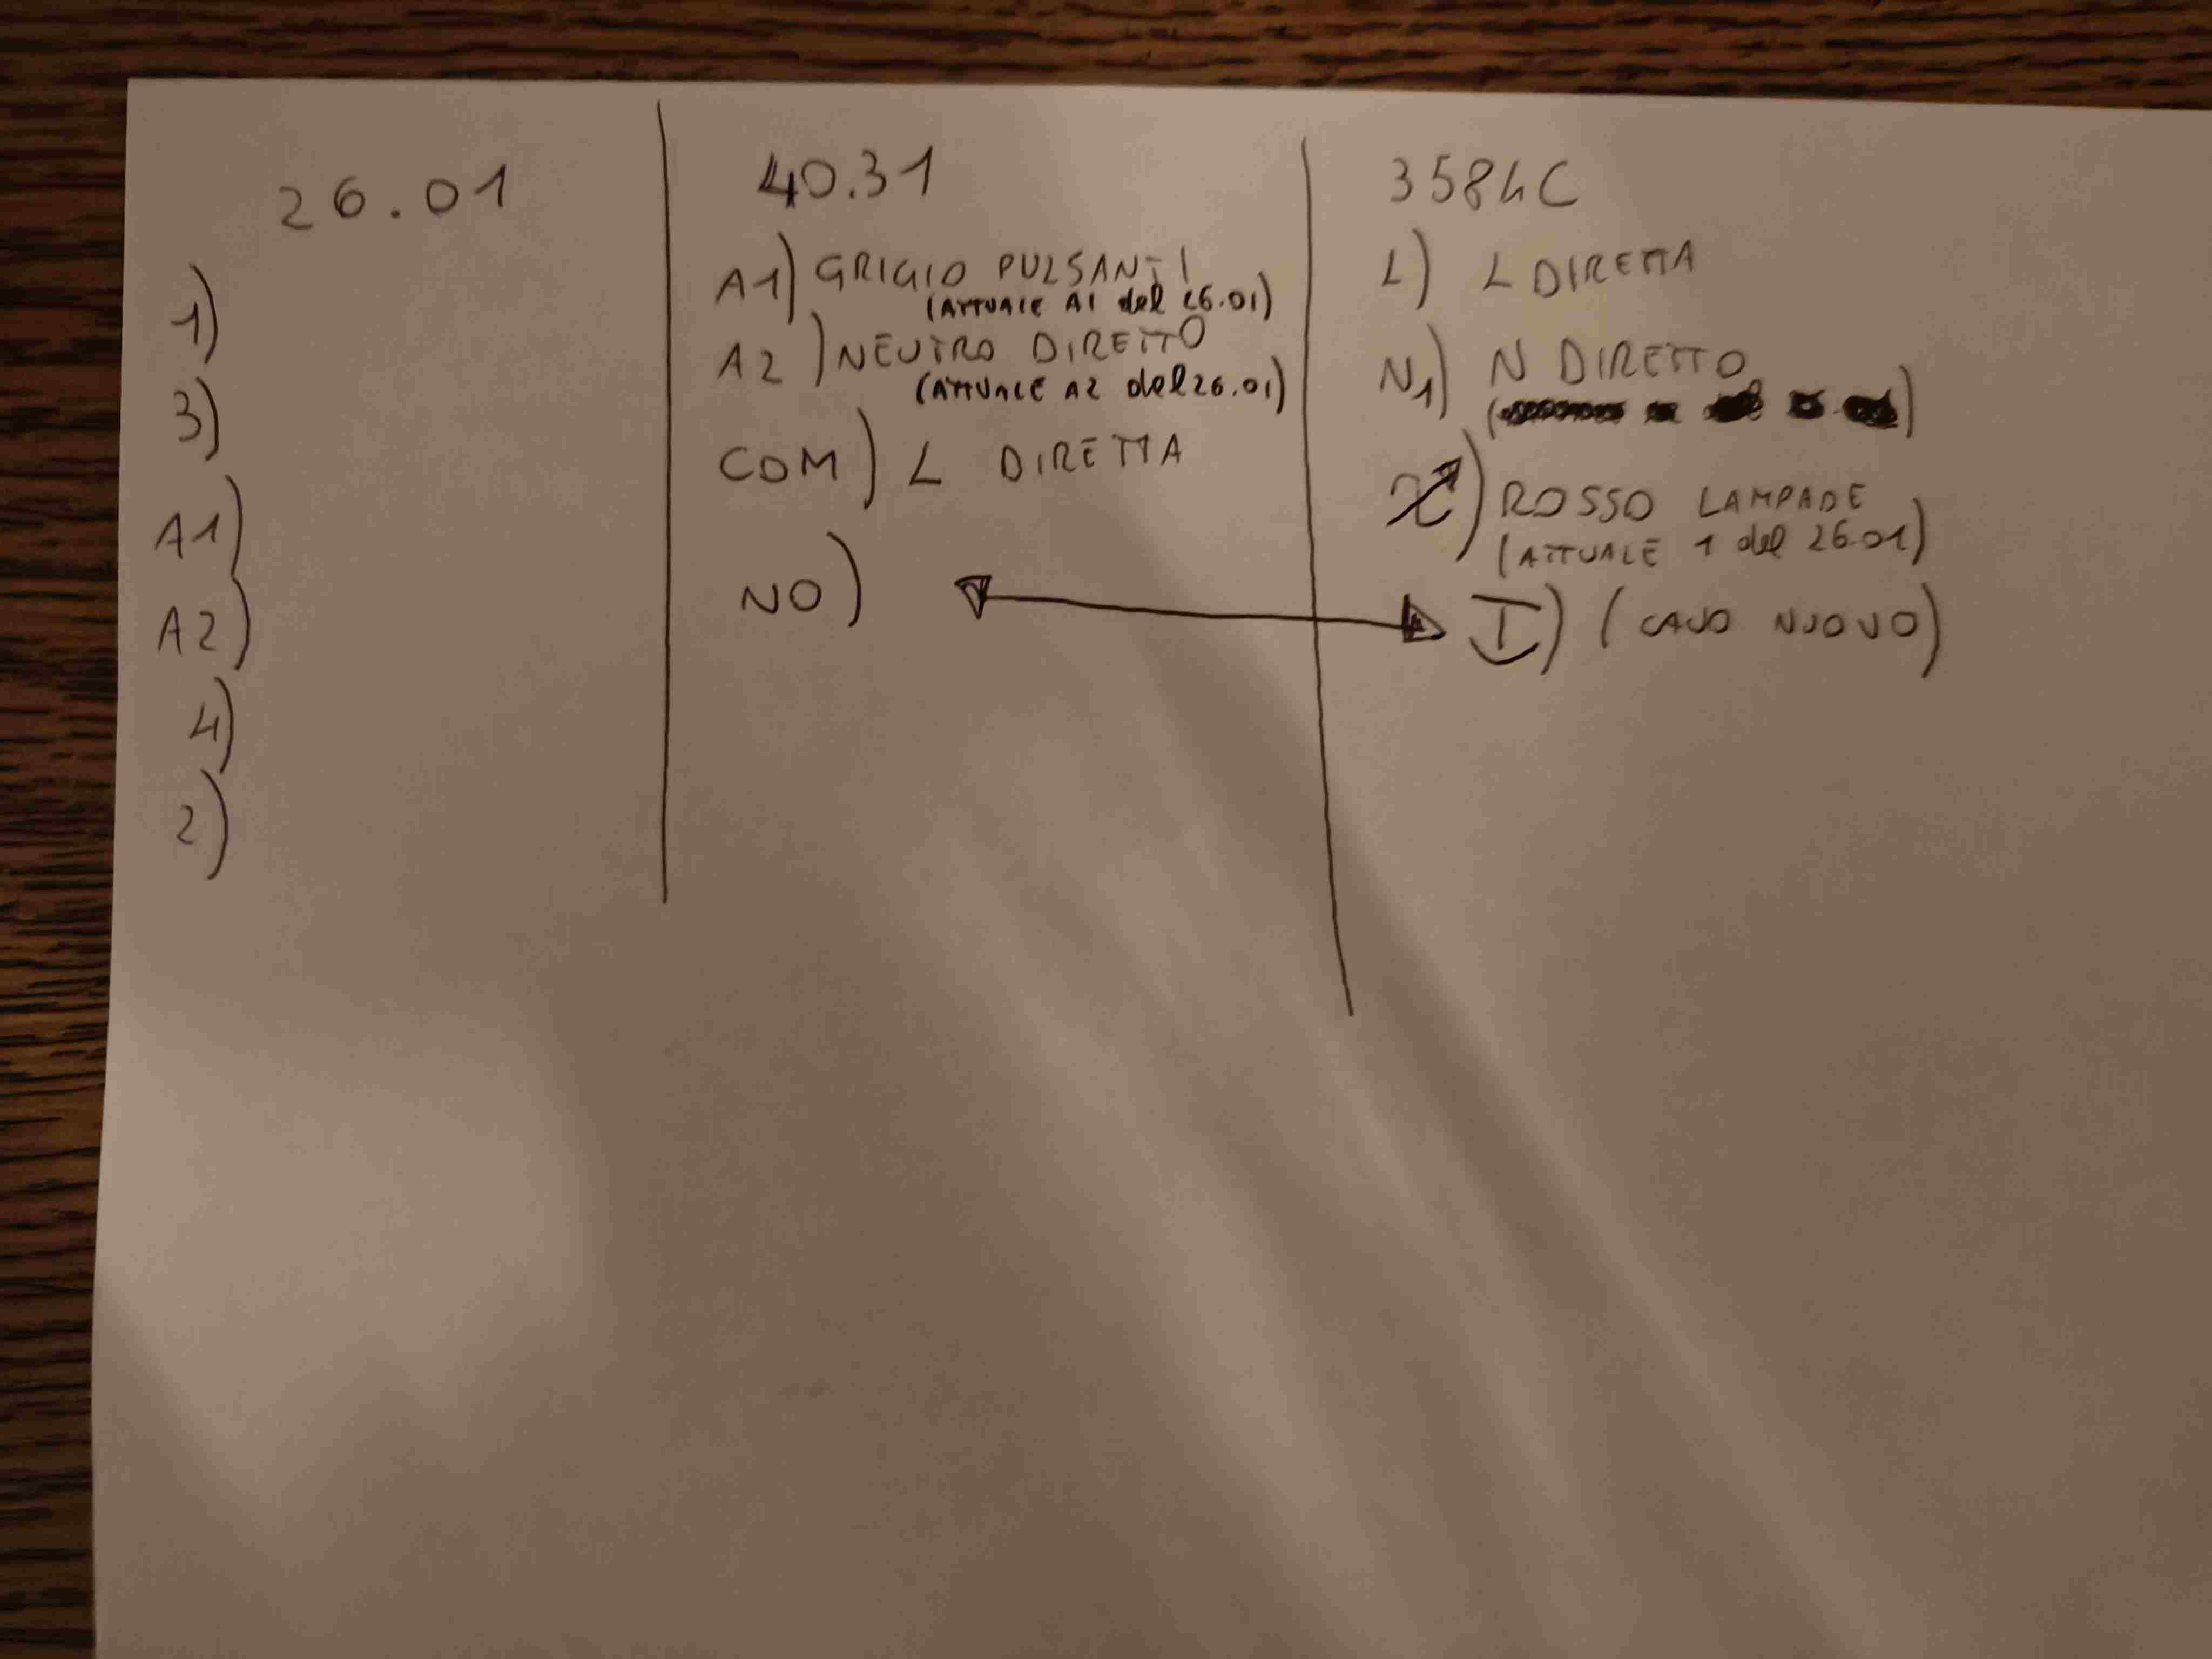 26.01
1)
3)
A1)
A2)
4)
2)
40.31
A1) GRIGIO PULSANTI
(ATTUALE A1 del 26.01)
A2) NEUTRO DIRETTO
(ATTUALE A2 del 26.01)
COM) L DIRETTA
NO)
3584C
L) L DIRETTA
N1) N DIRETTO
ROSSO LAMPADE
(ATTUALE 1 del 26.01)
(CAVO NUOVO)